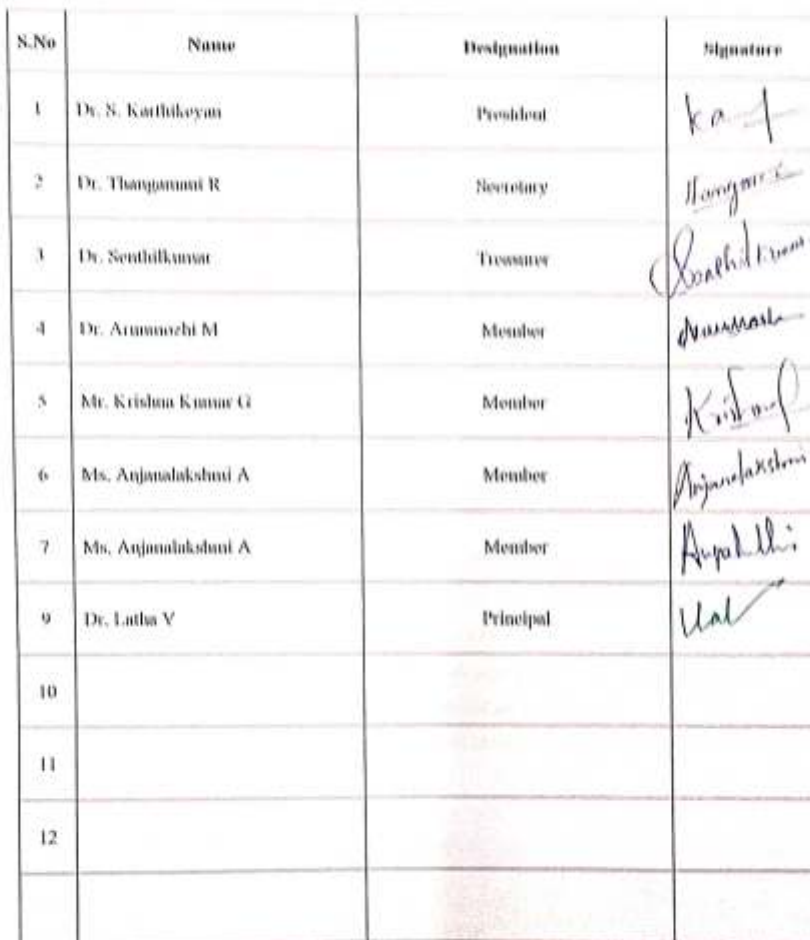 S.No Name Designation Signature
1 Dr. S. Karthikeyan President
2 Dr. Thangamani R Secretary
3 Dr. Senthilkumar Treasurer
4 Dr. Arumozhi M Member
5 Mr. Krishna Kumar G Member
6 Ms. Anjanalakshmi A Member Anjanalakshmi
7 Ms. Anjanalakshmi A Member
9 Dr. Latha V Principal
10
11
12